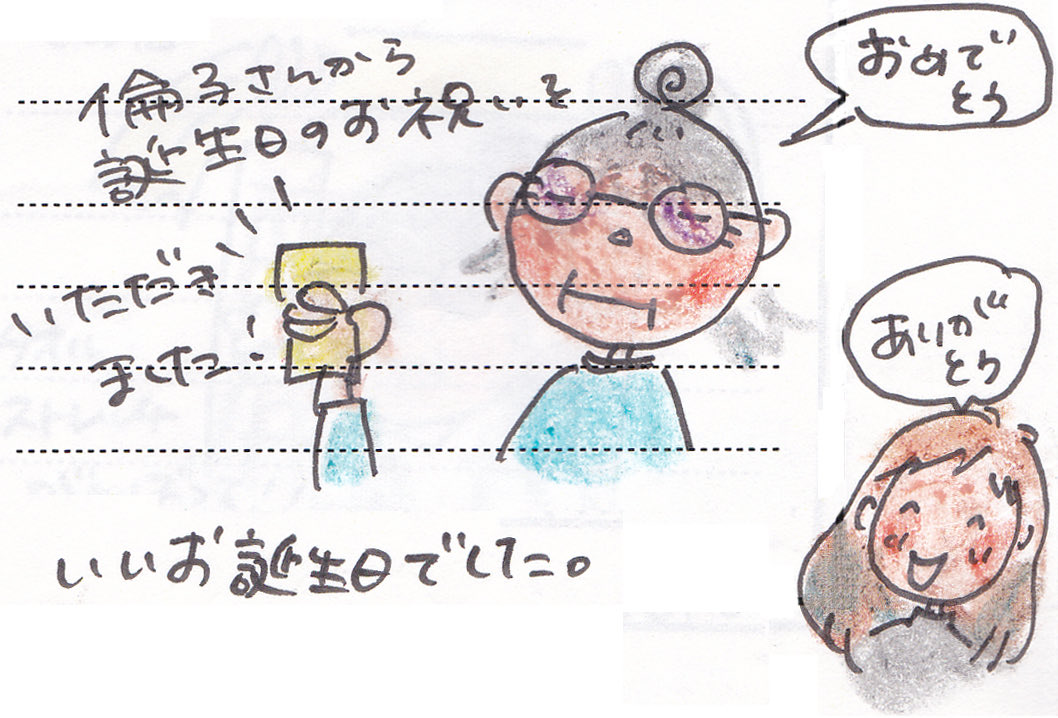 倫子さんから
誕生日のお祝いを
いただき
ました!
おめで
とう
ありが
とう
いいお誕生日でした。